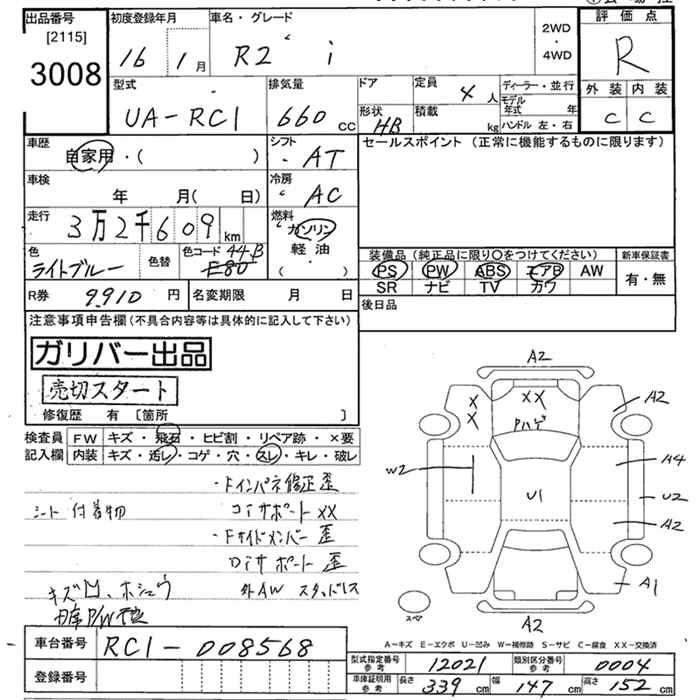 出品番号
[2115]
3008
初度登録年月
16 1月
車名・グレード
R2 i
2WD
・
4WD
評価点
R
外装 内装
C C
型式
UA-RC1
排気量
660 cc
ドア
形状
HB
定員
4人
積載
kg
ディーラー・並行
モデル年式 年
ハンドル 左・右
車歴
自家用・( )
シフト
・AT
セールスポイント (正常に機能するものに限ります)
車検
年 月( 日)
冷房
AC
走行
3万2千609km
燃料
ガソリン
・
軽油
( )
色
ライトブルー
色替
色コード
44-B
E80
装備品 (純正品に限り〇をつけてください)
PS PW ABS エアB AW
SR ナビ TV カワ
新車保証書
有・無
R券 9.910円
名変期限 月 日
後日品
注意事項申告欄 (不具合内容等は具体的に記入して下さい)
ガリバー出品
売切スタート
修復歴 有 〔箇所 〕
検査員記入欄
FW キズ・飛石・ヒビ割・リペア跡・×要
内装 キズ・汚レ・コゲ・穴・スレ・キレ・破レ
・Fインパネ修正歪
シート 付着物
コアサポート XX
・Fサイドメンバー 歪
アサポート 歪
キズ凹、ホシュウ
外AW スタッドレス
P/W
A2
XX
Pハゲ
X
X
A2
W2
U1
A4
U2
A2
A1
スペア
A2
A-キズ E-エクボ U-凹み W-補修跡 S-サビ C-腐食 XX-交換済
車台番号 RC1-008568
登録番号
型式指定番号 参考 12021
類別区分番号 参考 0004
車庫証明用 参考 長さ 339cm 幅 147cm 高さ 152cm